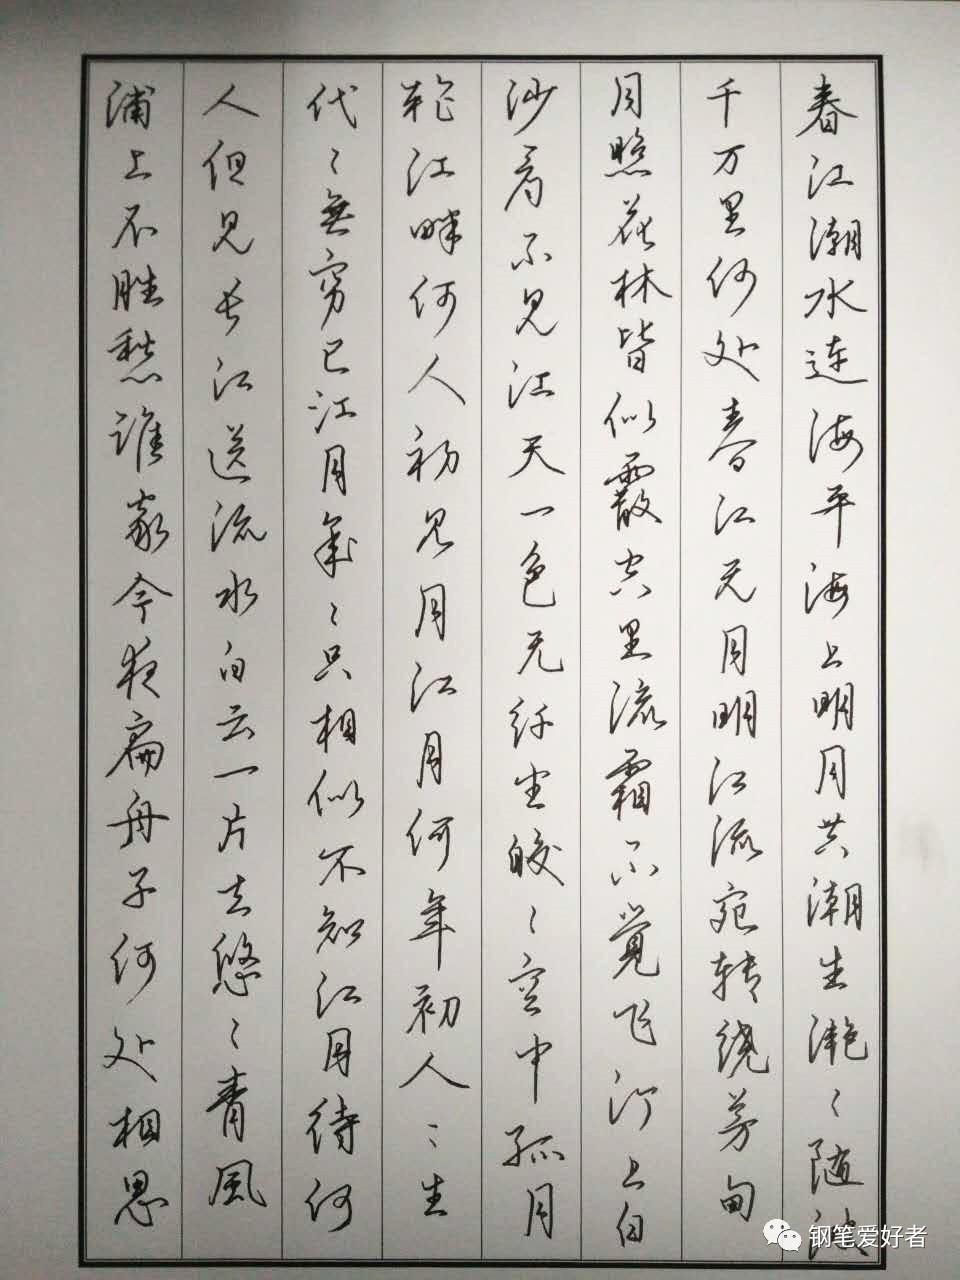 春江潮水连海平海上明月共潮生滟〻随波
千万里何处春江无月明江流宛转绕芳甸
月照花林皆似霰空里流霜不覺飞汀上白
沙看不见江天一色无纤尘皎〻空中孤月
轮江畔何人初见月江月何年初人〻生
代〻無穷已江月年〻只相似不知江月待何
人但见长江送流水白云一片去悠〻青風
浦上不胜愁谁家今夜扁舟子何处相思
钢笔爱好者